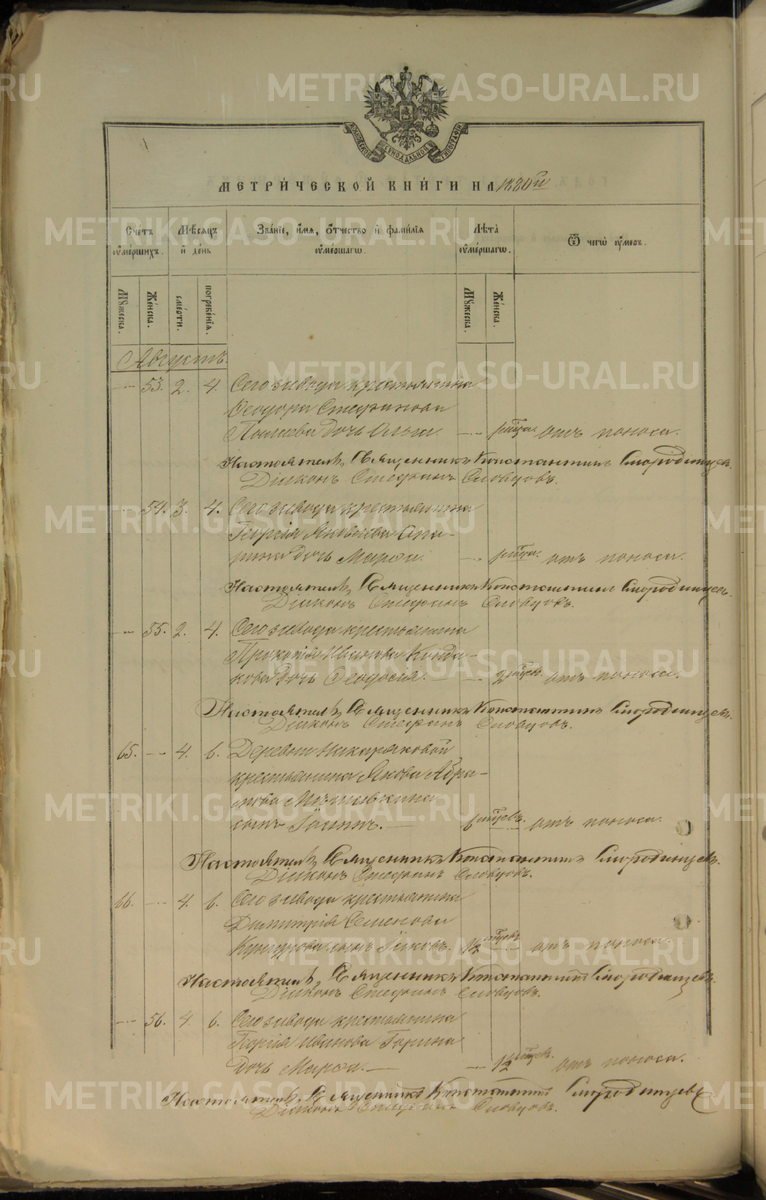 METRIKI.GASO-URAL.RU
МЕТРИ́ЧЕСКОЙ КНИ́ГИ НА 1880й
Счетъ ᲂумершихъ.
Мѣсяцъ и день
Зва́нїе, и́мя, ѻ́тчество и фами́лїя ᲂуме́ршагѡ.
Лѣта̀ ᲂуме́ршагѡ.
Ѿ чегѡ̀ ᲂу́меръ.
Мꙋжеска.
Же́нска.
сме́рти.
погребе́нїя.
Мꙋжеска.
Же́нска.
Августъ.
— 53. 2. 4. Сего завода крестьянина
Ѳеодора Стефанова
дочь Ольга. — отъ поноса.
Настоятель, Священникъ Константинъ Смородинцевъ.
Діаконъ Стефанъ Словцовъ.
— 54. 3. 4. Сего завода крестьянина
Георгія
дочь Марѳа. — отъ поноса.
Настоятель, Священникъ Константинъ Смородинцевъ.
Діаконъ Стефанъ Словцовъ.
— 55. 2. 4. Сего завода крестьянина
Прокопія Иванова
дочь Ѳеодосія. — 2 отъ поноса.
Настоятель, Священникъ Константинъ Смородинцевъ.
Діаконъ Стефанъ Словцовъ.
65. — 4. 6. Деревни
крестьянина Якова
сынъ — 6 отъ поноса.
Настоятель, Священникъ Константинъ Смородинцевъ.
Діаконъ Стефанъ Словцовъ.
66. — 4. 6. Сего завода крестьянина
Димитрія Семенова
сынъ Іаковъ. 12 — отъ поноса.
Настоятель, Священникъ Константинъ Смородинцевъ.
Діаконъ Стефанъ Словцовъ.
— 56. 4. 6. Сего завода крестьянина
Георгія Иванова
дочь Марѳа. — 12 отъ поноса.
Настоятель, Священникъ Константинъ Смородинцевъ
Діаконъ Стефанъ Словцовъ.